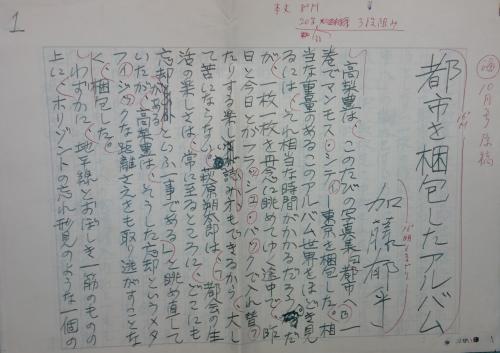 10月号原稿
都市を梱包したアルバム
加藤郁乎
高梨豊は、このたびの写真集『都市へ』一
巻でマンモス・シティー東京を梱包した。相
当な重量のあるこのアルバム世界をほどき見
るには、それ相当な時間がかかるだろう。だ
が、一枚一枚を丹念に眺めてゆく途中で、昨
日と今日とがフラッシュ・バックで入れ替っ
たりする楽しい読み方もできるから、大し
て苦にならない。萩原朔太郎は、「都会の生
活の楽しさは、常に至るところに、どこにも
忘却がある といふ一事である」と眺め直して
いたが、高梨豊は、そうした忘却というメタ
フィジックな距離さえも取り逃がすことな
く、梱包した。
わずかに、地平線とおぼしき一筋のものの
上に、ホリゾントの忘れ形見のような一個の
本文
20字
3段組み
1